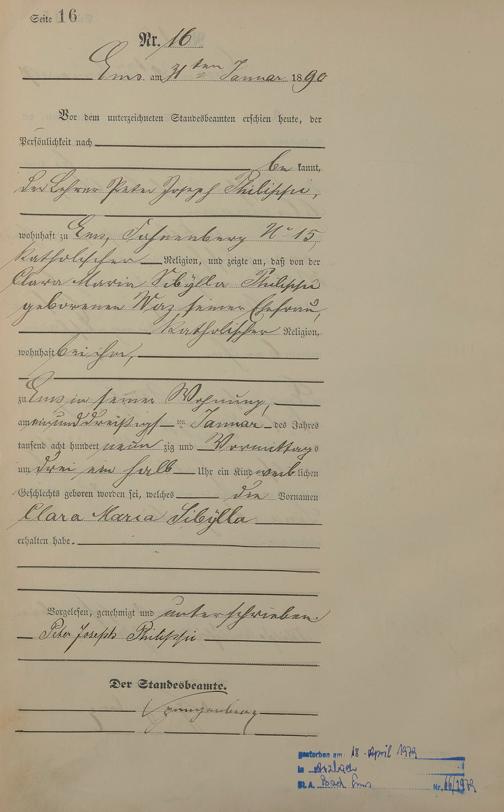 Seite 16
Nr. 16
Ems am 31ten Januar 1890
Vor dem unterzeichneten Standesbeamten erschien heute, der
Persönlichkeit nach
be kannt,
der Lehrer Peter Joseph Philippi,
wohnhaft zu Ems, Nº 15,
katholischer Religion, und zeigte an, daß von der
Clara Maria Sibylla Philippi
geborenen seiner Ehefrau,
katholischer Religion,
wohnhaft bei ihm,
zu Ems in seiner Wohnung,
am einunddreißigsten Januar des Jahres
tausend acht hundert neun zig und Vormittags
um drei ein halb Uhr ein Kind weib lichen
Geschlechts geboren worden sei, welches die Vornamen
Clara Maria Sibylla
erhalten habe.
Vorgelesen, genehmigt und unterschrieben.
Peter Joseph Philippi
Der Standesbeamte.
gestorben am 18. April 1979
in Arzbach
St. A. Bad Ems Nr. 66/1979